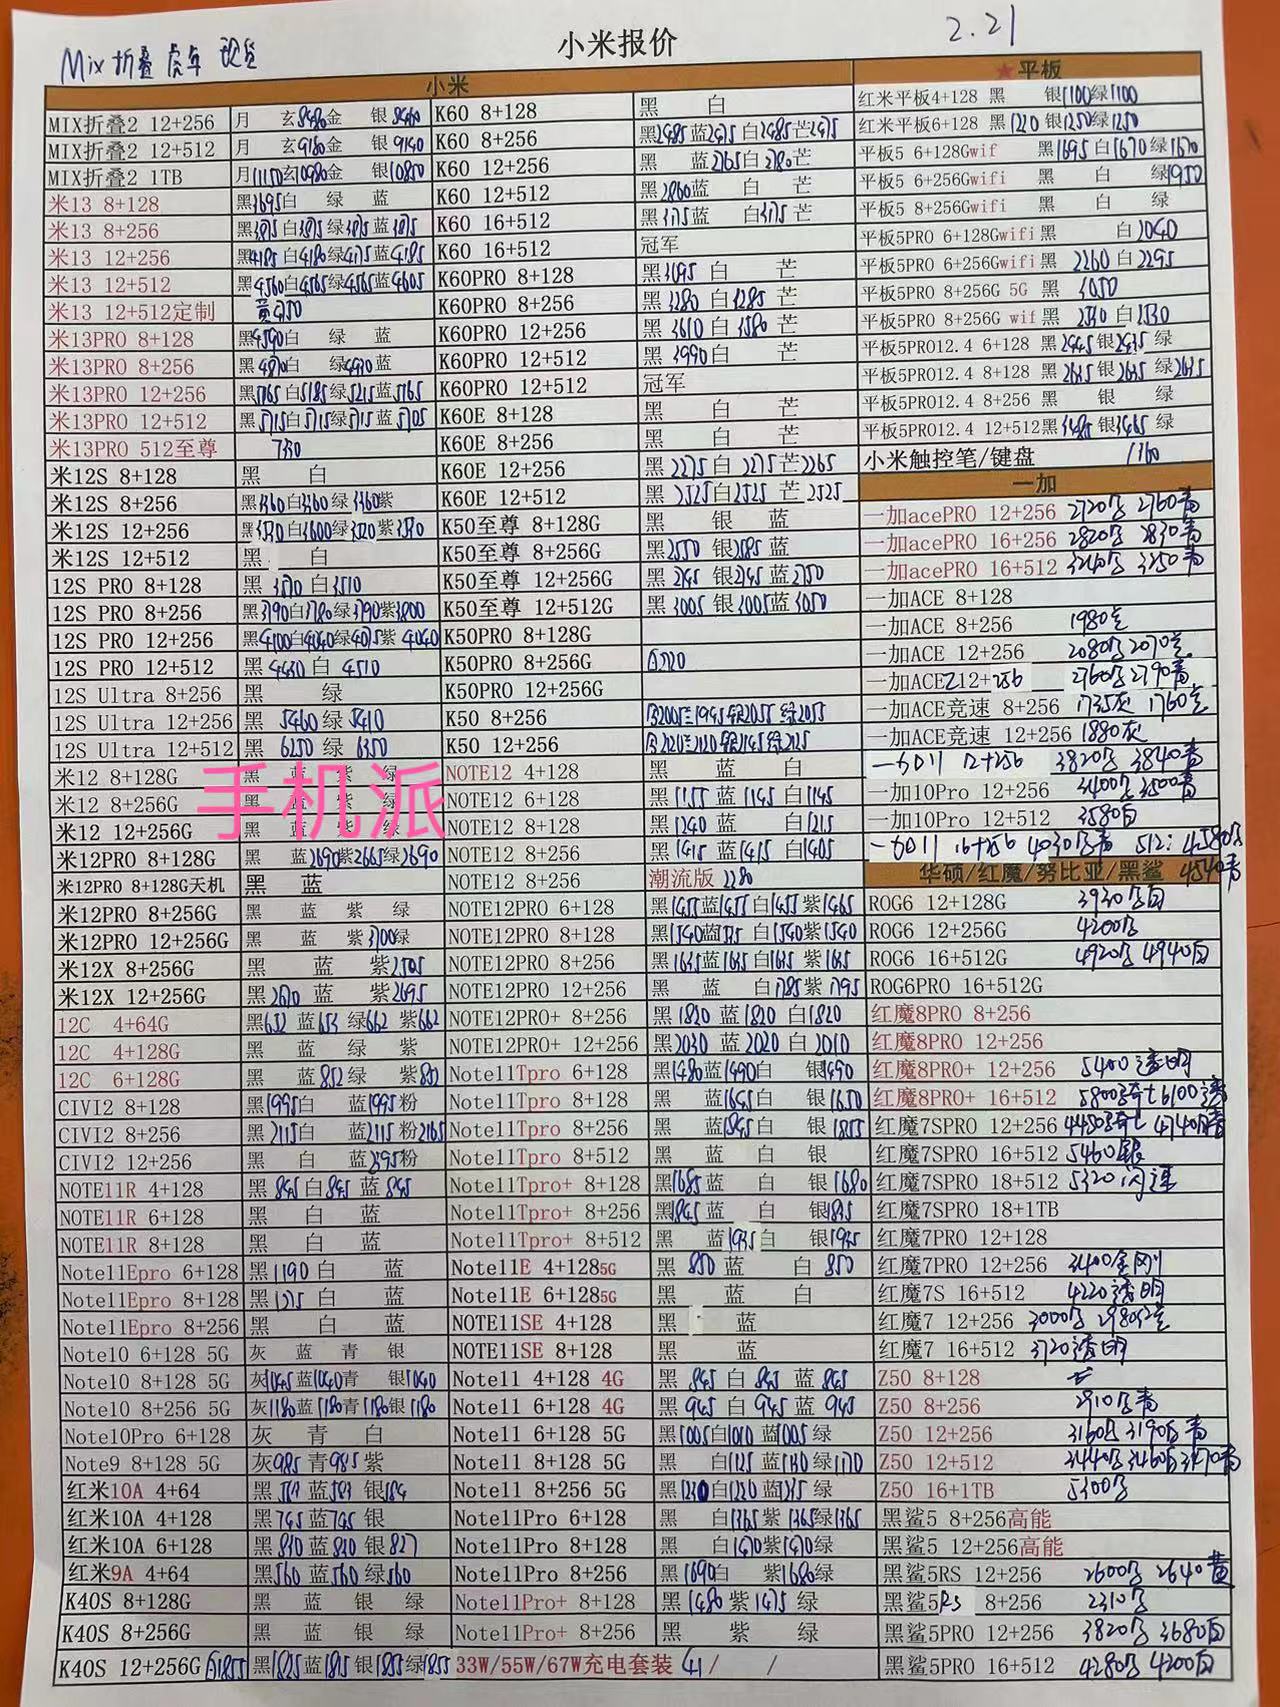 Mix折叠 虎年 现货
小米报价
2.21
小米
MIX折叠2 12+256 月 玄8980金 银
MIX折叠2 12+512 月 玄9180金 银9140
MIX折叠2 1TB 月11150玄10980金 银10850
米13 8+128 黑3695白 绿 蓝
米13 8+256 黑3875白3875绿3875蓝3875
米13 12+256 黑4185白4180绿4175蓝4185
米13 12+512 黑4560白4565绿4565蓝4605
米13 12+512定制
米13PRO 8+128 黑4590白 绿 蓝
米13PRO 8+256 黑4870白 绿4930蓝
米13PRO 12+256 黑5165白5185绿5215蓝5165
米13PRO 12+512 黑5715白5715绿5715蓝5705
米13PRO 512至尊 7350
米12S 8+128 黑 白
米12S 8+256 黑3360白3360绿3360紫
米12S 12+256
米12S 12+512 黑 白
12S PRO 8+128 黑3570白3510
12S PRO 8+256 黑3790白3780绿3790紫3800
12S PRO 12+256 黑4100白4040绿4075紫4040
12S PRO 12+512 黑4430白4510
12S Ultra 8+256 黑 绿
12S Ultra 12+256 黑5460绿5410
12S Ultra 12+512 黑6250绿6350
米12 8+128G 黑 蓝 紫 绿
米12 8+256G 黑 蓝 紫 绿
米12 12+256G 黑 蓝 紫 绿
手机派
米12PRO 8+128G 黑 蓝2690紫2665绿2690
米12PRO 8+128G天机 黑 蓝
米12PRO 8+256G 黑 蓝 紫 绿
米12PRO 12+256G 黑 蓝 紫3100绿
米12X 8+256G 黑 蓝 紫2505
米12X 12+256G 黑2670蓝 紫2695
12C 4+64G 黑652蓝653绿662紫662
12C 4+128G 黑 蓝 绿 紫
12C 6+128G 黑 蓝852绿 紫852
CIVI2 8+128 黑1995白 蓝1995粉
CIVI2 8+256 黑2115白 蓝2115粉2165
CIVI2 12+256 黑 白 蓝2395粉
NOTE11R 4+128 黑845白845蓝845
NOTE11R 6+128 黑 白 蓝
NOTE11R 8+128 黑 白 蓝
Note11Epro 6+128 黑1190白 蓝
Note11Epro 8+128 黑1275白 蓝
Note11Epro 8+256 黑 白 蓝
Note10 6+128 5G 灰 蓝 青 银
Note10 8+128 5G 灰1045蓝1040青 银1040
Note10 8+256 5G 灰1180蓝1180青1180银1180
Note10Pro 6+128 灰 青 白
Note9 8+128 5G 灰985青985紫
红米10A 4+64
红米10A 4+128 黑745蓝745银
红米10A 6+128 黑830蓝830银827
红米9A 4+64 黑560蓝560绿560
K40S 8+128G 黑 蓝 银 绿
K40S 8+256G 黑 蓝 银 绿
K40S 12+256G 白1855黑1825蓝1815银1855绿1855
K60 8+128 黑 白
K60 8+256 黑2485蓝2475白2485芒2475
K60 12+256 黑 蓝2765白2780芒
K60 12+512 黑2860蓝 白 芒
K60 16+512 黑3175蓝 白3175芒
K60 16+512 冠军
K60PRO 8+128 黑3095白 芒
K60PRO 8+256 黑3280白3285芒
K60PRO 12+256 黑3610白3580芒
K60PRO 12+512 黑3990白 芒
K60PRO 12+512 冠军
K60E 8+128 黑 白 芒
K60E 8+256 黑 白 芒
K60E 12+256 黑2275白2275芒2265
K60E 12+512 黑2525白2525芒2525
K50至尊 8+128G 黑 银 蓝
K50至尊 8+256G 黑2550银2585蓝
K50至尊 12+256G 黑2745银2745蓝2750
K50至尊 12+512G 黑3005银3005蓝3050
K50PRO 8+128G
K50PRO 8+256G
K50PRO 12+256G
K50 8+256
K50 12+256
NOTE12 4+128 黑 蓝 白
NOTE12 6+128 黑1155蓝1145白1145
NOTE12 8+128 黑1240蓝 白1215
NOTE12 8+256 黑1415蓝1415白1405
NOTE12 8+256 潮流版 2280
NOTE12PRO 6+128 黑1455蓝1455白1455紫1465
NOTE12PRO 8+128 黑1540蓝1535白1540紫1540
NOTE12PRO 8+256 黑1635蓝1635白1635紫1635
NOTE12PRO 12+256 黑 蓝 白1785紫1795
NOTE12PRO+ 8+256 黑1820蓝1820白1820
NOTE12PRO+ 12+256 黑2030蓝2020白2010
Note11Tpro 6+128 黑1480蓝1490白 银1490
Note11Tpro 8+128 黑 蓝1645白 银1650
Note11Tpro 8+256 黑 蓝1845白 银1855
Note11Tpro 8+512 黑 蓝 白 银
Note11Tpro+ 8+128 黑1685蓝 白 银1680
Note11Tpro+ 8+256 黑1845蓝 白 银1835
Note11Tpro+ 8+512 黑 蓝1935白 银1945
Note11E 4+128 5G 黑850蓝 白850
Note11E 6+128 5G 黑 蓝 白
NOTE11SE 4+128 黑 蓝
NOTE11SE 8+128 黑 蓝
Note11 4+128 4G 黑845白845蓝845
Note11 6+128 4G 黑945白945蓝945
Note11 6+128 5G 黑1005白1010蓝1005绿
Note11 8+128 5G 黑 白1125蓝1130绿1170
Note11 8+256 5G 黑1230白1220蓝1235绿
Note11Pro 6+128 黑 白1365紫1365绿1365
Note11Pro 8+128 黑 白1470紫1470绿
Note11Pro 8+256 黑1690白 紫1680绿
Note11Pro+ 8+128 黑1480紫1475绿
Note11Pro+ 8+256 黑 紫 绿
33W/55W/67W充电套装 41/ /
★平板
红米平板4+128 黑 银1100绿1100
红米平板6+128 黑1220银1250绿1250
平板5 6+128Gwif 黑1695白1670绿1670
平板5 6+256Gwifi 黑 白 绿1950
平板5 8+256Gwifi 黑 白 绿
平板5PRO 6+128Gwifi黑 白2040
平板5PRO 6+256Gwifi黑2260白2295
平板5PRO 8+256G 5G 黑3050
平板5PRO 8+256G wif黑2530白2530
平板5PRO12.4 6+128 黑2445银2435绿
平板5PRO12.4 8+128 黑2635银2635绿2635
平板5PRO12.4 8+256 黑 银 绿
平板5PRO12.4 12+512黑3485银3465绿
小米触控笔/键盘
一加
一加acePRO 12+256 2720黑 2760青
一加acePRO 16+256 2820黑 2830青
一加acePRO 16+512 3240黑 3250青
一加ACE 8+128
一加ACE 8+256 1980蓝
一加ACE 12+256 2080黑2070蓝
一加ACE2 12+256 2760黑2790青
一加ACE竞速 8+256 1735灰 1760蓝
一加ACE竞速 12+256 1880灰
一加11 12+256 3820黑 3840青
一加10Pro 12+256 3400黑3500青
一加10Pro 12+512 3580白
一加11 16+256 4030黑青 512:4580黑
4540青
华硕/红魔/努比亚/黑鲨
ROG6 12+128G 3930黑白
ROG6 12+256G 4200黑
ROG6 16+512G 4920黑 4940白
ROG6PRO 16+512G
红魔8PRO 8+256
红魔8PRO 12+256
红魔8PRO+ 12+256 5400透明
红魔8PRO+ 16+512 5800骑士6100透
红魔7SPRO 12+256
红魔7SPRO 16+512 5460银
红魔7SPRO 18+512 5320闪速
红魔7SPRO 18+1TB
红魔7PRO 12+128
红魔7PRO 12+256 3400金刚
红魔7S 16+512 4220透明
红魔7 12+256 3000黑 2980蓝
红魔7 16+512 3720透明
Z50 8+128 无
Z50 8+256 2910黑青
Z50 12+256 3160黑3190白青
Z50 12+512 3440黑3460白3470青
Z50 16+1TB 5300黑
黑鲨5 8+256高能
黑鲨5 12+256高能
黑鲨5RS 12+256 2600黑 2640黄
黑鲨5RS 8+256 2310黑
黑鲨5PRO 12+256 3820黑 3680白
黑鲨5PRO 16+512 4280黑 4200白